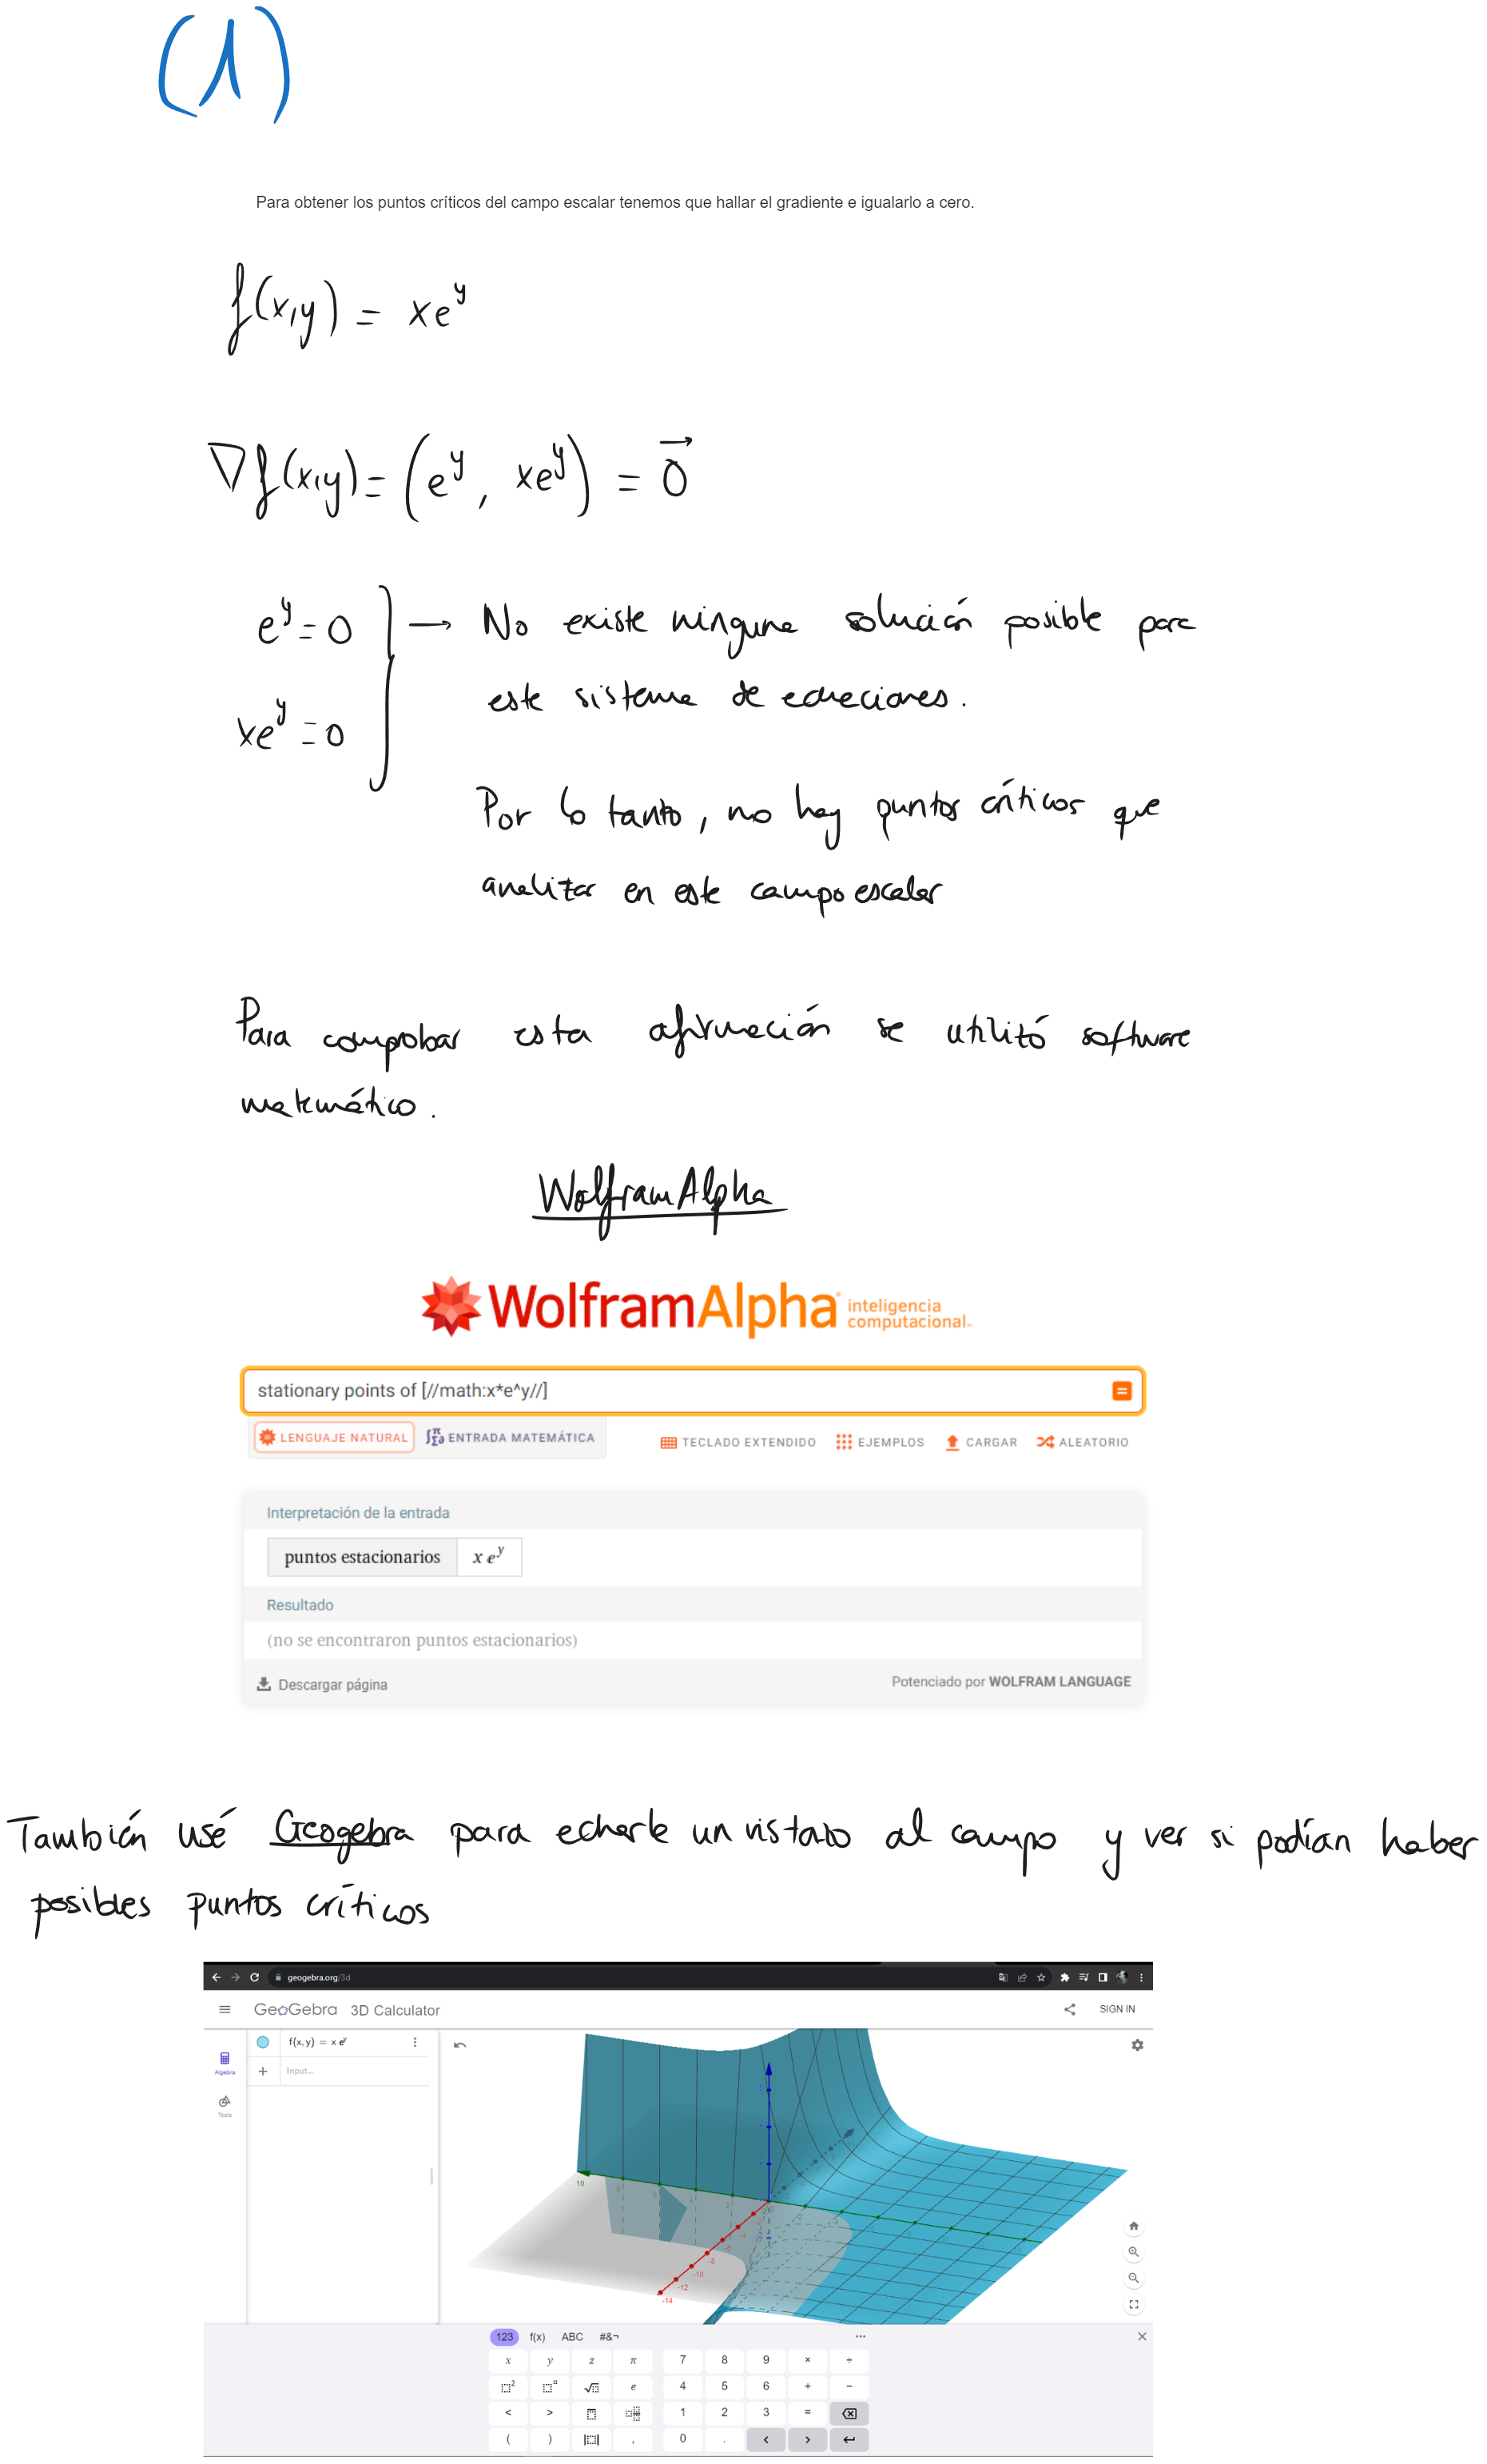 (1)
Para obtener los puntos críticos del campo escalar tenemos que hallar el gradiente e igualarlo a cero.
f(x,y) = xe^y
∇f(x,y) = (e^y, xe^y) = 0⃗
e^y = 0 } → No existe ninguna solución posible para
xe^y = 0 este sistema de ecuaciones.
Por lo tanto, no hay puntos críticos que
analizar en este campo escalar
Para comprobar esta afirmación se utilizó software
matemático.
WolframAlpha
WolframAlpha inteligencia computacional™
stationary points of [//math:x*e^y//]
LENGUAJE NATURAL ENTRADA MATEMÁTICA TECLADO EXTENDIDO EJEMPLOS CARGAR ALEATORIO
Interpretación de la entrada
puntos estacionarios x e^y
Resultado
(no se encontraron puntos estacionarios)
Descargar página Potenciado por WOLFRAM LANGUAGE
También usé Geogebra para echarle un vistazo al campo y ver si podían haber
posibles puntos críticos
geogebra.org/3d
GeoGebra 3D Calculator SIGN IN
f(x, y) = x e^y
Algebra
+ Input...
Tools
10
-8
-10
-12
-14
123 f(x) ABC #&¬
x y z π 7 8 9 × ÷
e 4 5 6 + −
< > 1 2 3 =
( ) , 0 . < >